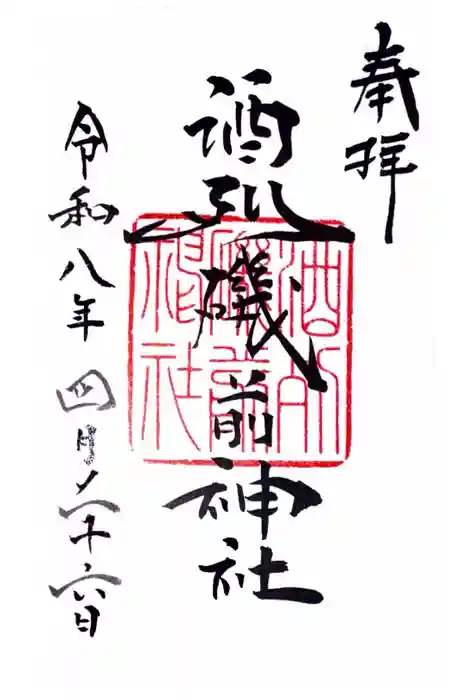 奉拝
酒列磯前神社
令和八年四月二十六日
酒列
磯前
神社